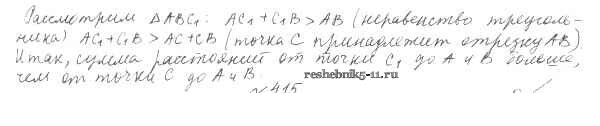 Рассмотрим ΔABC₁: AC₁+C₁B > AB (неравенство треуголь-
ника) AC₁+C₁B > AC+CB (точка C принадлежит отрезку AB)
Итак, сумма расстояний от точки C₁ до A и B больше,
чем от точки C до A и B.
reshebnik5-11.ru
№415